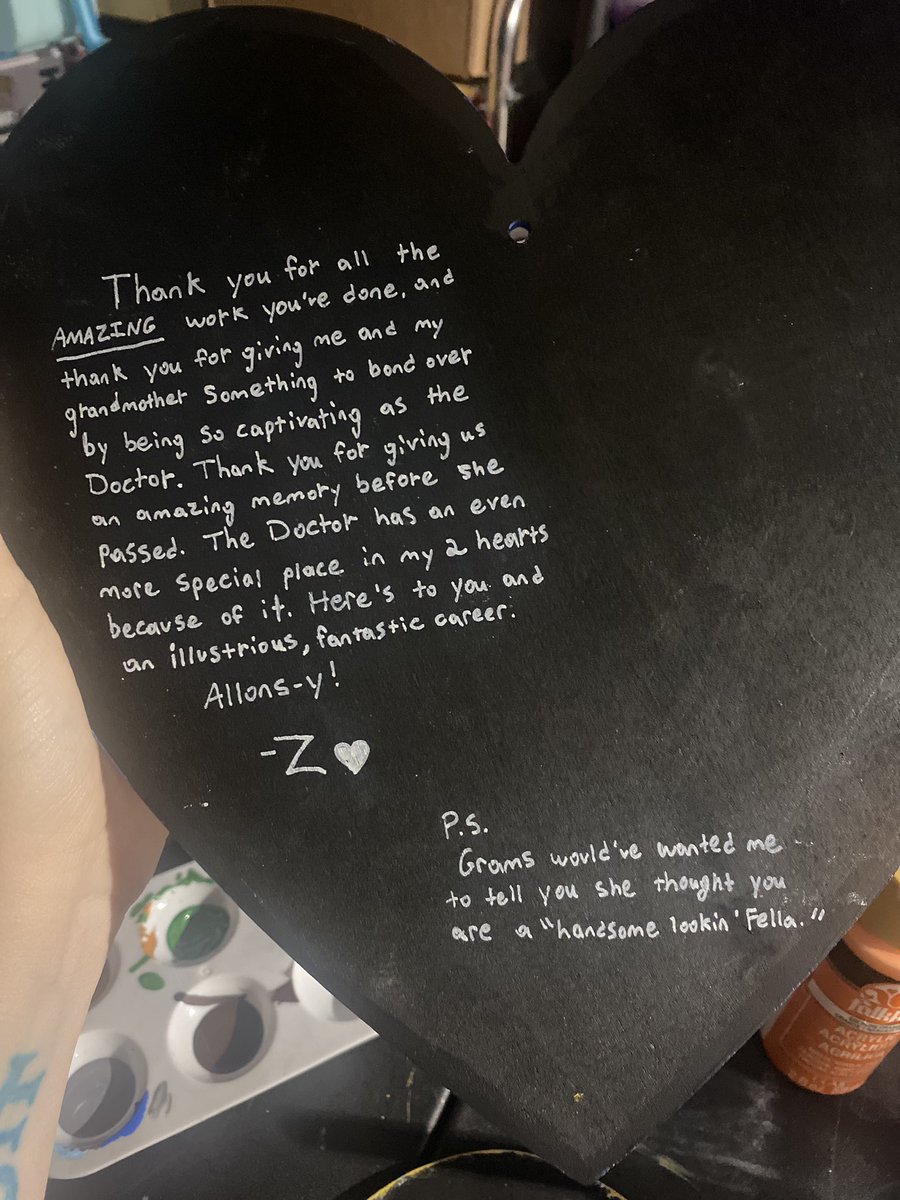 Thank you for all the
AMAZING work you've done, and
thank you for giving me and my
grandmother something to bond over
by being so captivating as the
Doctor. Thank you for giving us
an amazing memory before she
passed. The Doctor has an even
more special place in my 2 hearts
because of it. Here's to you and
an illustrious, fantastic career.
Allons-y!
-Z
P.S.
Grams would've wanted me
to tell you she thought you
are a "handsome lookin' Fella."
ACRYLIC